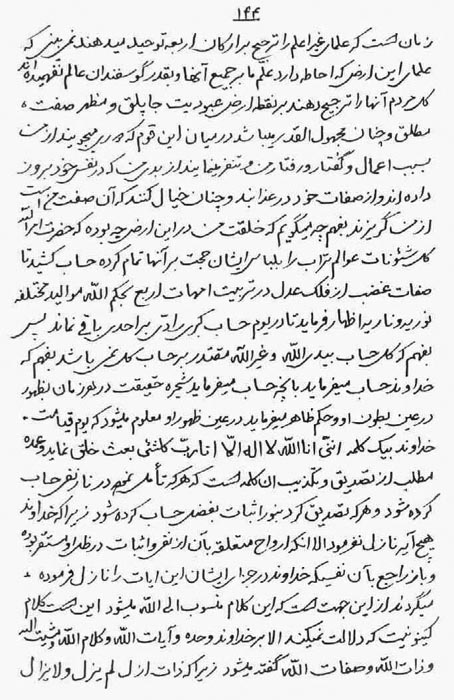 ۱۴۴
زمان هست که علمای غیر اعلم را ترجیح بر ارکان اربعه توحید میدهند نمی بینی که
علمای این ارض که احاطه دارد علم ما بر جمیع آنها و بقدر گوسفندان عالم نفهمیده اند
کل مردم آنها را ترجیح دهند بر نقطه ارض عبودیت جابلق و مظهر صفت
مطلق و چنان مجهول القدر میباشد در میان این قوم که میجویند از من
بسبب اعمال و گفتار و رفتار من و تنفر مینمایند از بدی من که در نفس خود بروز
داده اند و از صفات خود در عذابند و چنان خیال کنند که آن صفت من است
از من گریزند بفهم چه میگویم که خلقت من در این ارض چه بوده که حضرت
کل شئونات عوالم تراب را بلباس ایشان حجت بر آنها تمام کرده حساب کشید تا
صفات غضب از فلک عدل در تربیت امهات اربع بحکم الله موالید مختلفه
نوریه و ناریه اظهار فرماید تا در یوم حساب کبری رادی بر احدی باقی نماند پس
بفهم که کل حساب بیدی الله و غیر الله مقتدر بر حساب کل نمی باشد بفهم که
خداوند حساب میفرماید یا بچه حساب میفرماید شجره حقیقت در هر زمان بظهور
در عین بطون او و حکم ظاهر میفرماید در عین ظهور او معلوم میشود که یوم قیامت
خداوند بیک کلمه اننی انا الله لا اله الا انا رب کلشئی بعث خلق نماید و عمده
مطلب از تصدیق و تکذیب ان کلمه است که هرکه تأمل نمود در نار نفی حساب
کرده شود و هرکه تصدیق کرد بنور اثبات بفضل حساب کرده شود زیرا که خداوند
هیچ آیه نازل نفرمود الا انکه ارواح متعلقه بآن از نفی و اثبات در ظل او مستقر بوده
و باز راجع بآن نفسیکه خداوند در ایشان این ایات را نازل فرموده
میگردند از این جهت است که این کلام منسوب الی الله میشود این است کلام
کینونیت که دلالت نمیکند الا بر خداوند وحده و آیات الله و کلام الله و مشیت الله
و ذات الله و صفات الله گفته میشود زیرا که ذات ازل لم یزل و لا یزال